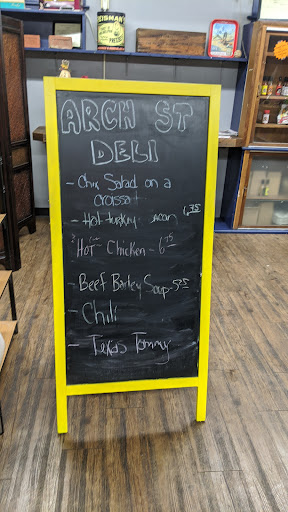 ARCH ST
DELI
- Chix Salad on a
croissat
- Hot turkey 6.75
"Hot" Chicken - 6.75
- Beef Barley Soup - 5.25
- Chili
- Texas Tommy